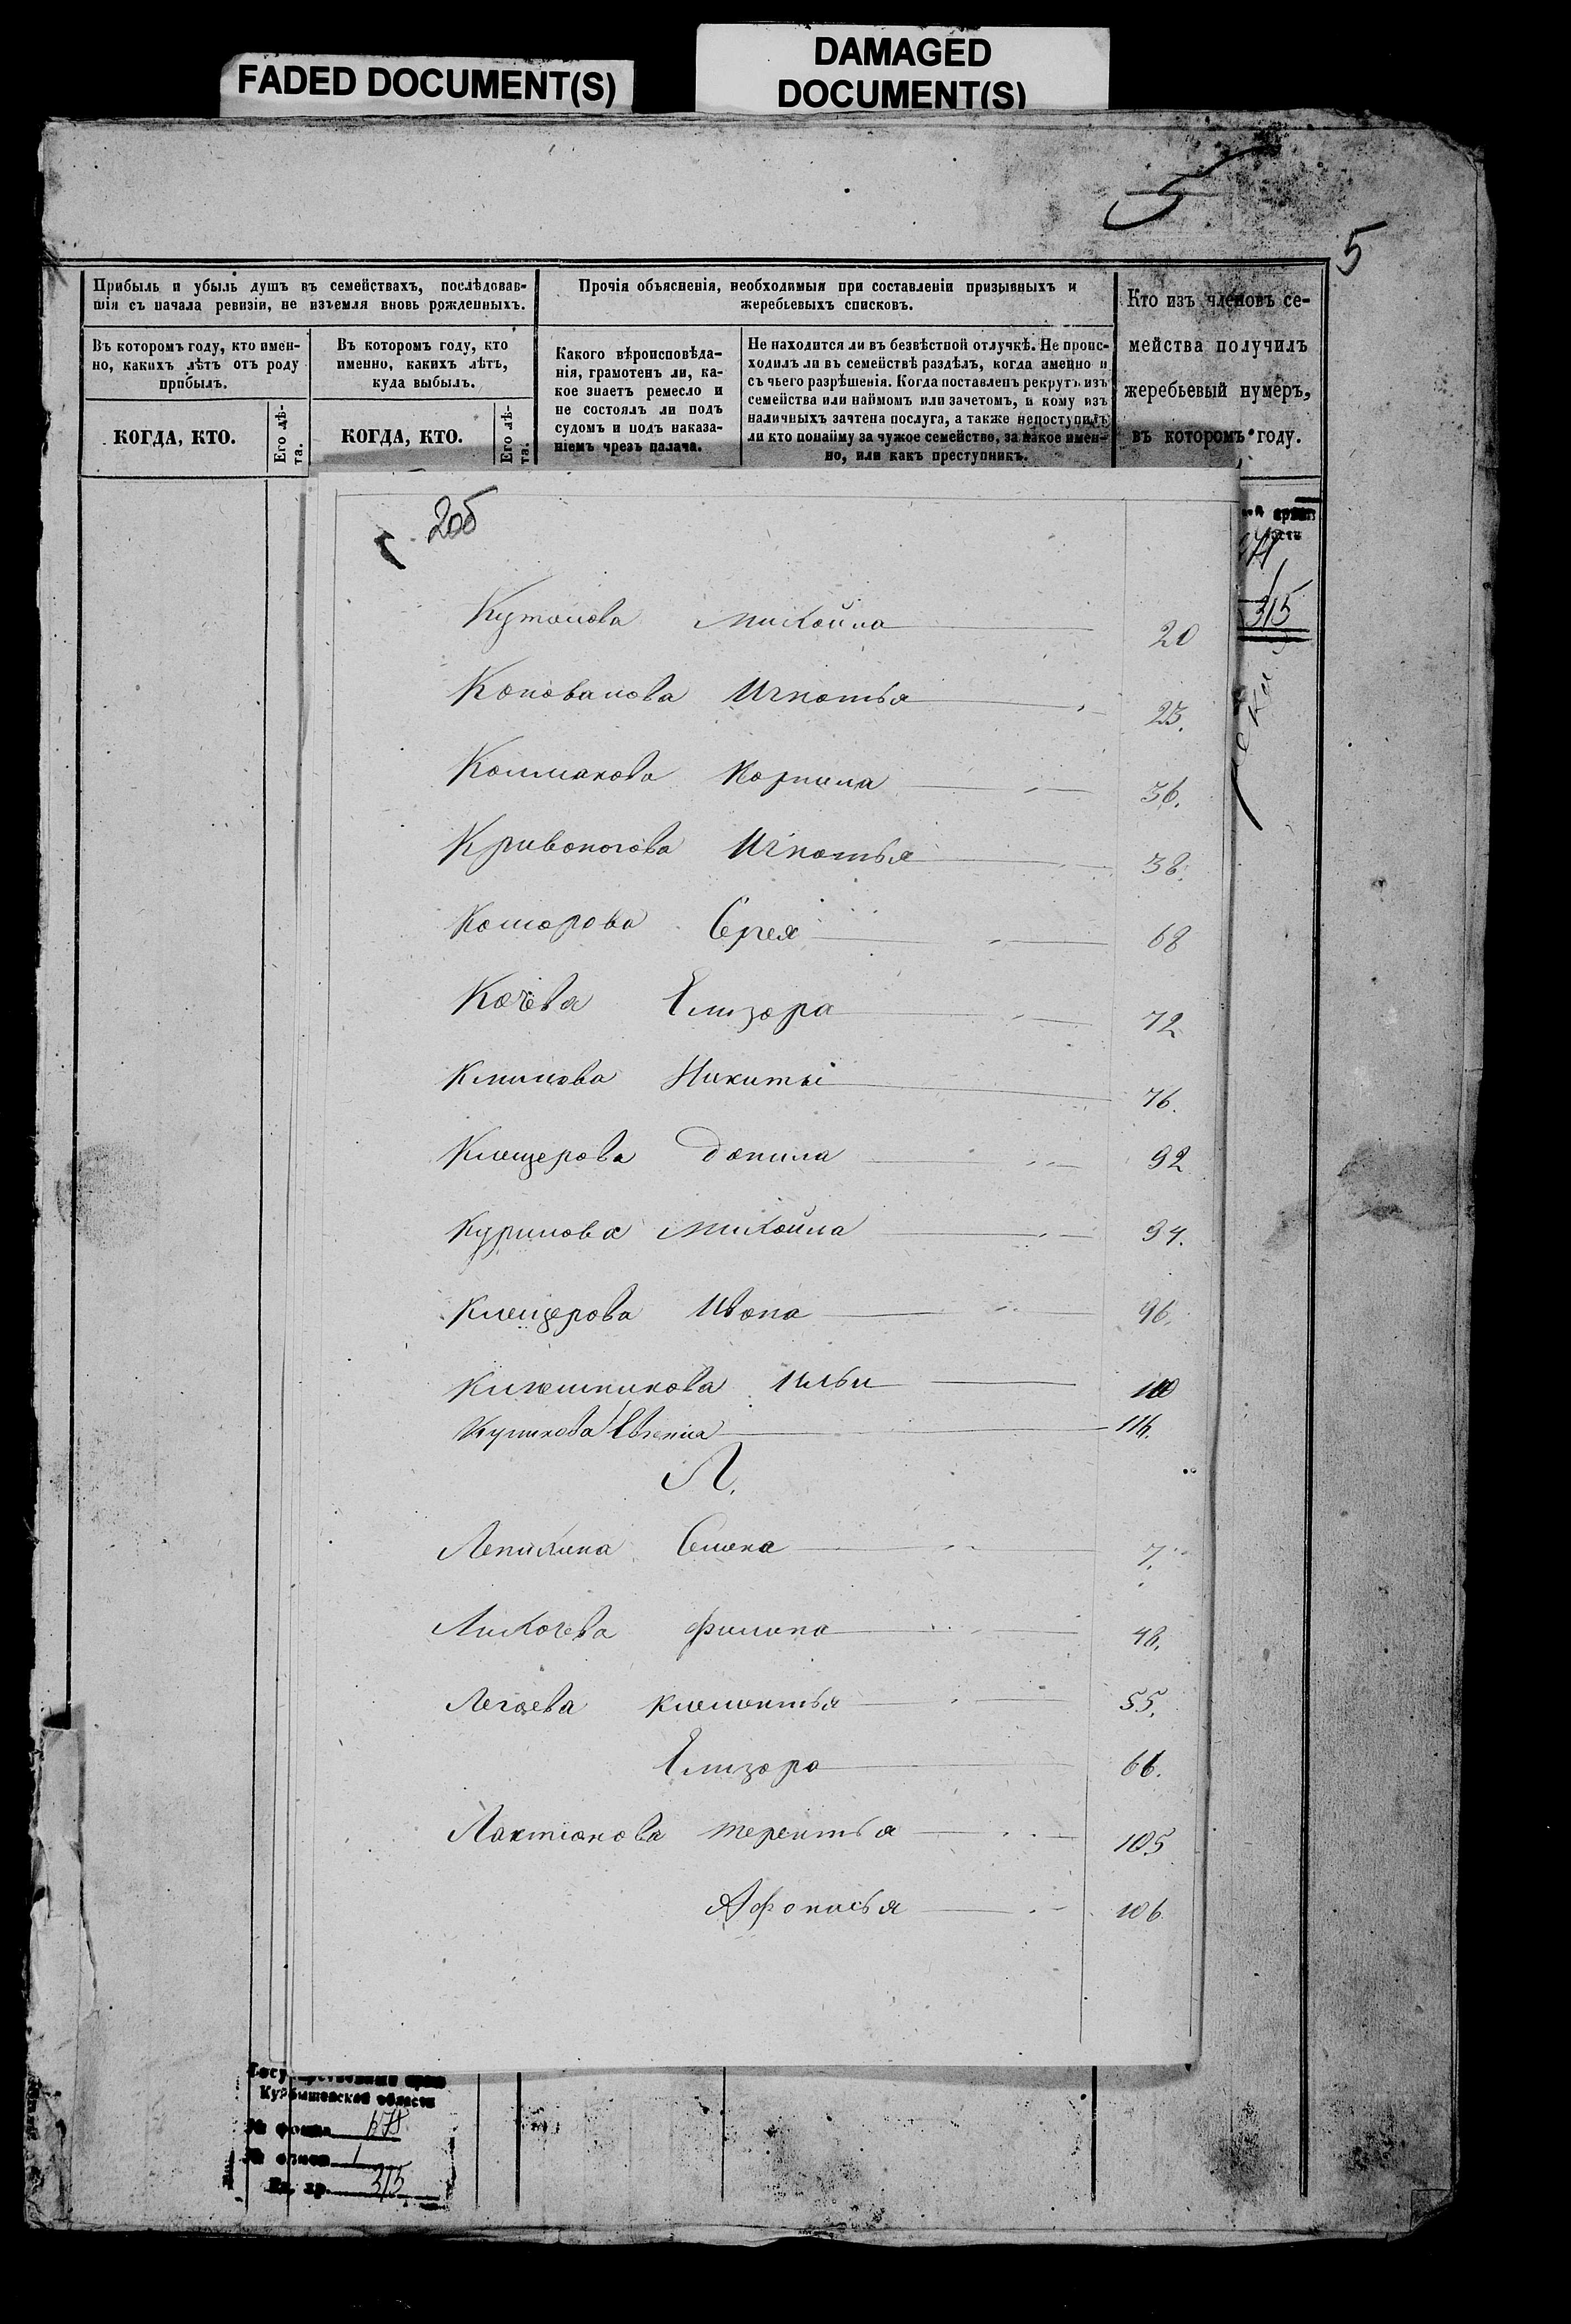 FADED DOCUMENT(S)
DAMAGED
DOCUMENT(S)
5
5
Прибыль и убыль душъ въ семействахъ, послѣдовав-
шія съ начала ревизіи, не изъемля вновь рожденныхъ.
Въ которомъ году, кто имен-
но, какихъ лѣтъ отъ роду
прибылъ.
КОГДА, КТО.
Его лѣ-
та.
Въ которомъ году, кто
именно, какихъ лѣтъ,
куда выбылъ.
КОГДА, КТО.
Его лѣ-
та.
Прочія объясненія, необходимыя при составленіи призывныхъ и
жеребьевыхъ списковъ.
Какого вѣроисповѣда-
нія, грамотенъ ли, ка-
кое знаетъ ремесло и
не состоялъ ли подъ
судомъ и подъ наказа-
ніемъ чрезъ палача.
Не находится ли въ безвѣстной отлучкѣ. Не проис-
ходилъ ли въ семействѣ раздѣлъ, когда именно и
съ чьего разрѣшенія. Когда поставленъ рекрутъ изъ
семейства или наймомъ или зачетомъ, и кому изъ
наличныхъ зачтена послуга, а также непоступилъ
ли кто понайму за чужое семейство, за какое имен-
но, или какъ преступникъ.
Кто изъ членовъ се-
мейства получилъ
жеребьевый нумеръ,
въ которомъ году.
315
Михайла 20
Коновалова Игнатья 23.
Колмакова Корнила 36.
Кривоногова Игнатья 38.
Комарова Сергея 68
Качева Елизара 72
Климова Никиты 76.
Клещерова Данила 92
Курилова Михайла 94.
Клещерова Ивана 96.
Ильи 110
Куликова Евгения 116.
Л.
Лепихина Семена 7.
Лихачева Филипа 48.
Легаева Клементья 55.
Елизара 66.
Лактионова Терентья 105
Афонасья 106
Государственный архив
Куйбышевской области
№ фонда
№ описи 1
Ед. хр. 315